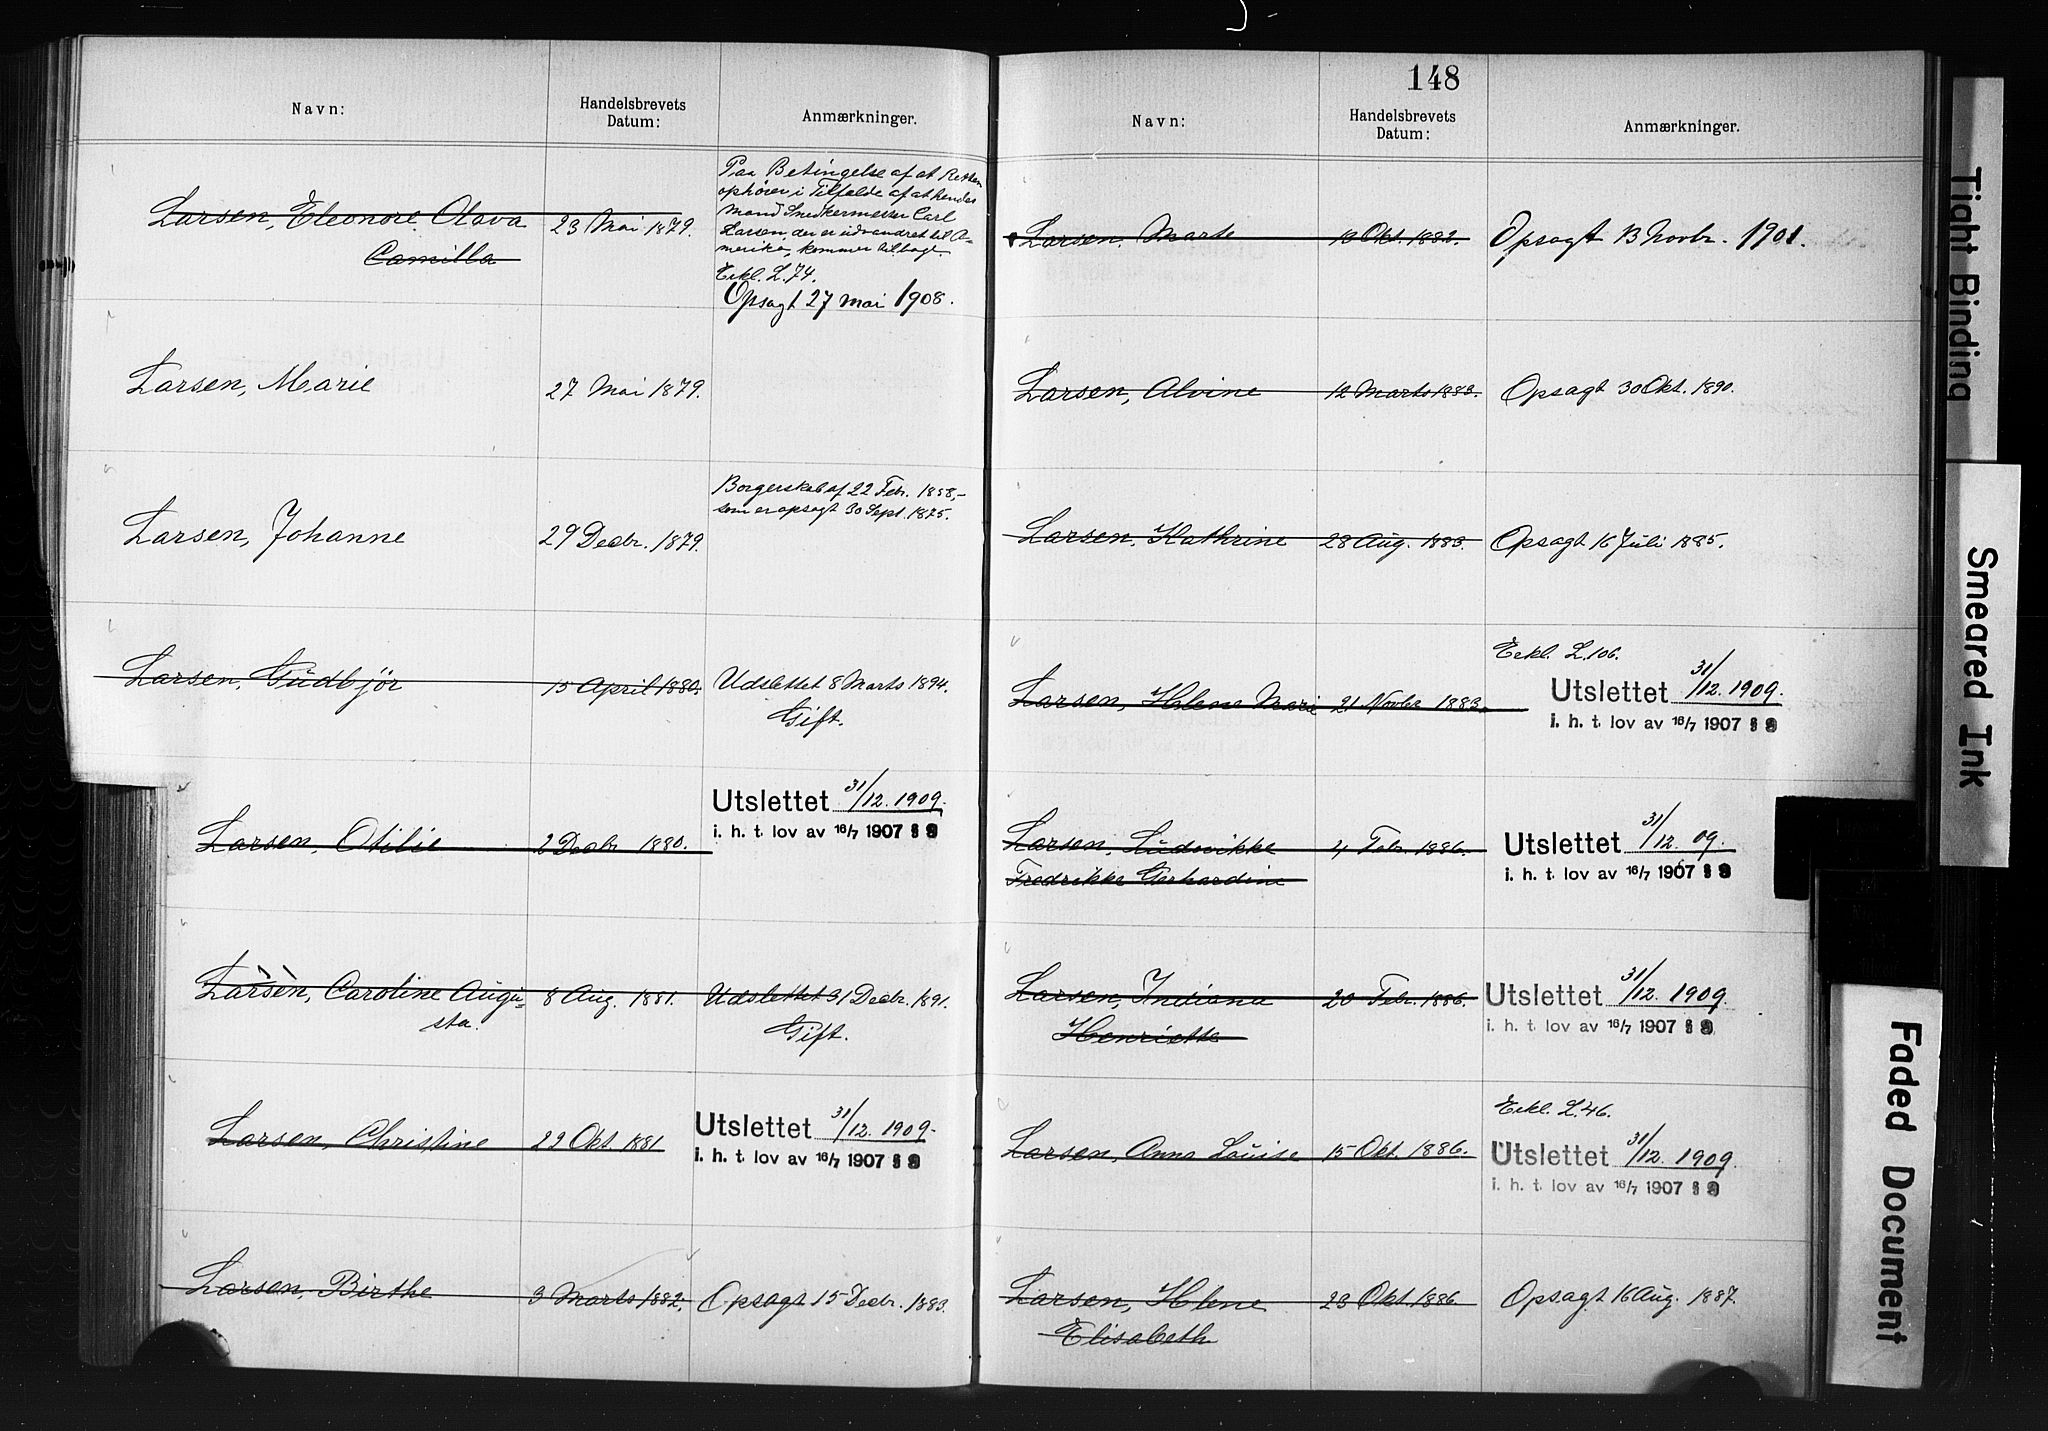 Navn:
Handelsbrevets
Datum:
Anmærkninger.
Larsen, Eleonore Olava
Camilla
23 Mai 1879.
Paa Betingelse af at Retten
ophører i Tilfælde af at hendes
Mand Snedkermester Carl
Larsen, der er udvandret til A-
merika, kommer tilbage.
Erkl. L. 74.
Opsagt 27 mai 1908.
Larsen, Marie
27 Mai 1879.
Larsen, Johanne
29 Decbr. 1879.
Borgerskab af 22 Febr. 1858,-
som er opsagt 30 Sept. 1875.
Larsen, Gudbjör
15 April 1880.
Udslettet 8 Marts 1894.
Gift.
Larsen, Otilie
2 Decbr 1880.
Utslettet 31/12. 1909.
i. h. t. lov av 16/7 1907 §
Larsen, Caroline Augu-
sta.
8 Aug. 1881.
Udslettet 31 Decbr. 1891.
Gift.
Larsen, Christine
29 Okt. 1881
Utslettet 31/12. 1909.
i. h. t. lov av 16/7 1907 §
Larsen, Birthe
3 Marts 1882.
Opsagt 15 Decbr. 1883.
148
Navn:
Handelsbrevets
Datum:
Anmærkninger.
Larsen, Marte
Okt. 1882.
Opsagt 13 Novbr. 1901.
Larsen, Alvine
12 Marts 1883.
Opsagt 30 Okt. 1890.
Larsen, Kathrine
28 Aug. 1883.
Opsagt 16 Juli 1885.
Larsen, Helene Marie
21 Novbr 1883.
Erkl. L. 106.
Utslettet 31/12. 1909.
i. h. t. lov av 16/7 1907 §
Larsen, Ludovikke
Fredrikke Gerhardine
4 Febr. 1886.
Utslettet 31/12. 09.
i. h. t. lov av 16/7 1907 §
Larsen, Indiana
Henriette
20 Febr. 1886.
Utslettet 31/12. 1909.
i. h. t. lov av 16/7 1907 §
Larsen, Anna Louise
15 Okt. 1886.
Erkl. L. 46.
Utslettet 31/12. 1909.
i. h. t. lov av 16/7 1907 §
Larsen, Helene
Elisabeth
23 Okt. 1886
Opsagt 16 Aug. 1887.
Tight Binding
Smeared Ink
Faded Document